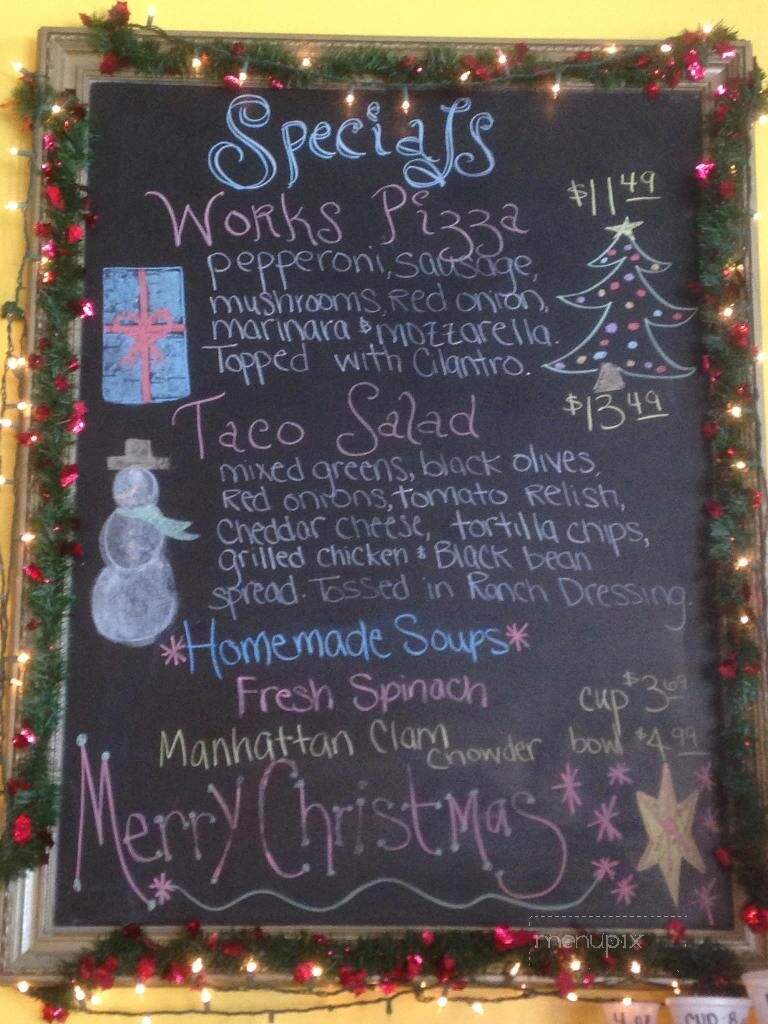 Specials
Works Pizza $11.49
pepperoni, sausage,
mushrooms, Red onion,
marinara & mozzarella.
Topped with Cilantro.
Taco Salad $13.49
mixed greens, black olives,
Red onions, tomato Relish,
cheddar cheese, tortilla chips,
grilled chicken & Black bean
spread. Tossed in Ranch Dressing.
*Homemade Soups*
Fresh Spinach cup $3.69
Manhattan Clam chowder bowl $4.99
Merry Christmas
menupix
4 oz CUP 8